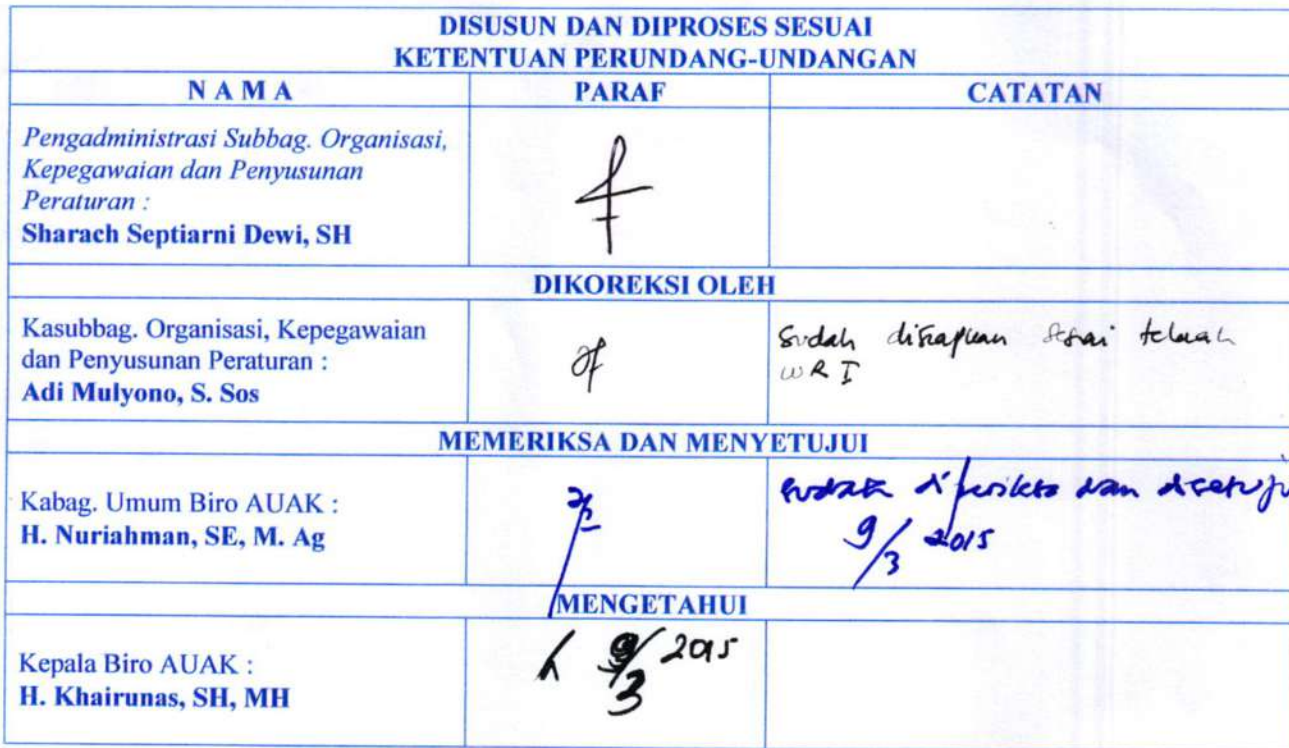 DISUSUN DAN DIPROSES SESUAI
KETENTUAN PERUNDANG-UNDANGAN
NAMA PARAF CATATAN
Pengadministrasi Subbag. Organisasi,
Kepegawaian dan Penyusunan
Peraturan :
Sharach Septiarni Dewi, SH
DIKOREKSI OLEH
Kasubbag. Organisasi, Kepegawaian
dan Penyusunan Peraturan :
Adi Mulyono, S. Sos
Sudah disiapkan sesuai telaah
WR I
MEMERIKSA DAN MENYETUJUI
Kabag. Umum Biro AUAK :
H. Nuriahman, SE, M. Ag
sudah diperiksa dan disetuju
9/3 2015
MENGETAHUI
Kepala Biro AUAK :
H. Khairunas, SH, MH
9/3 2015